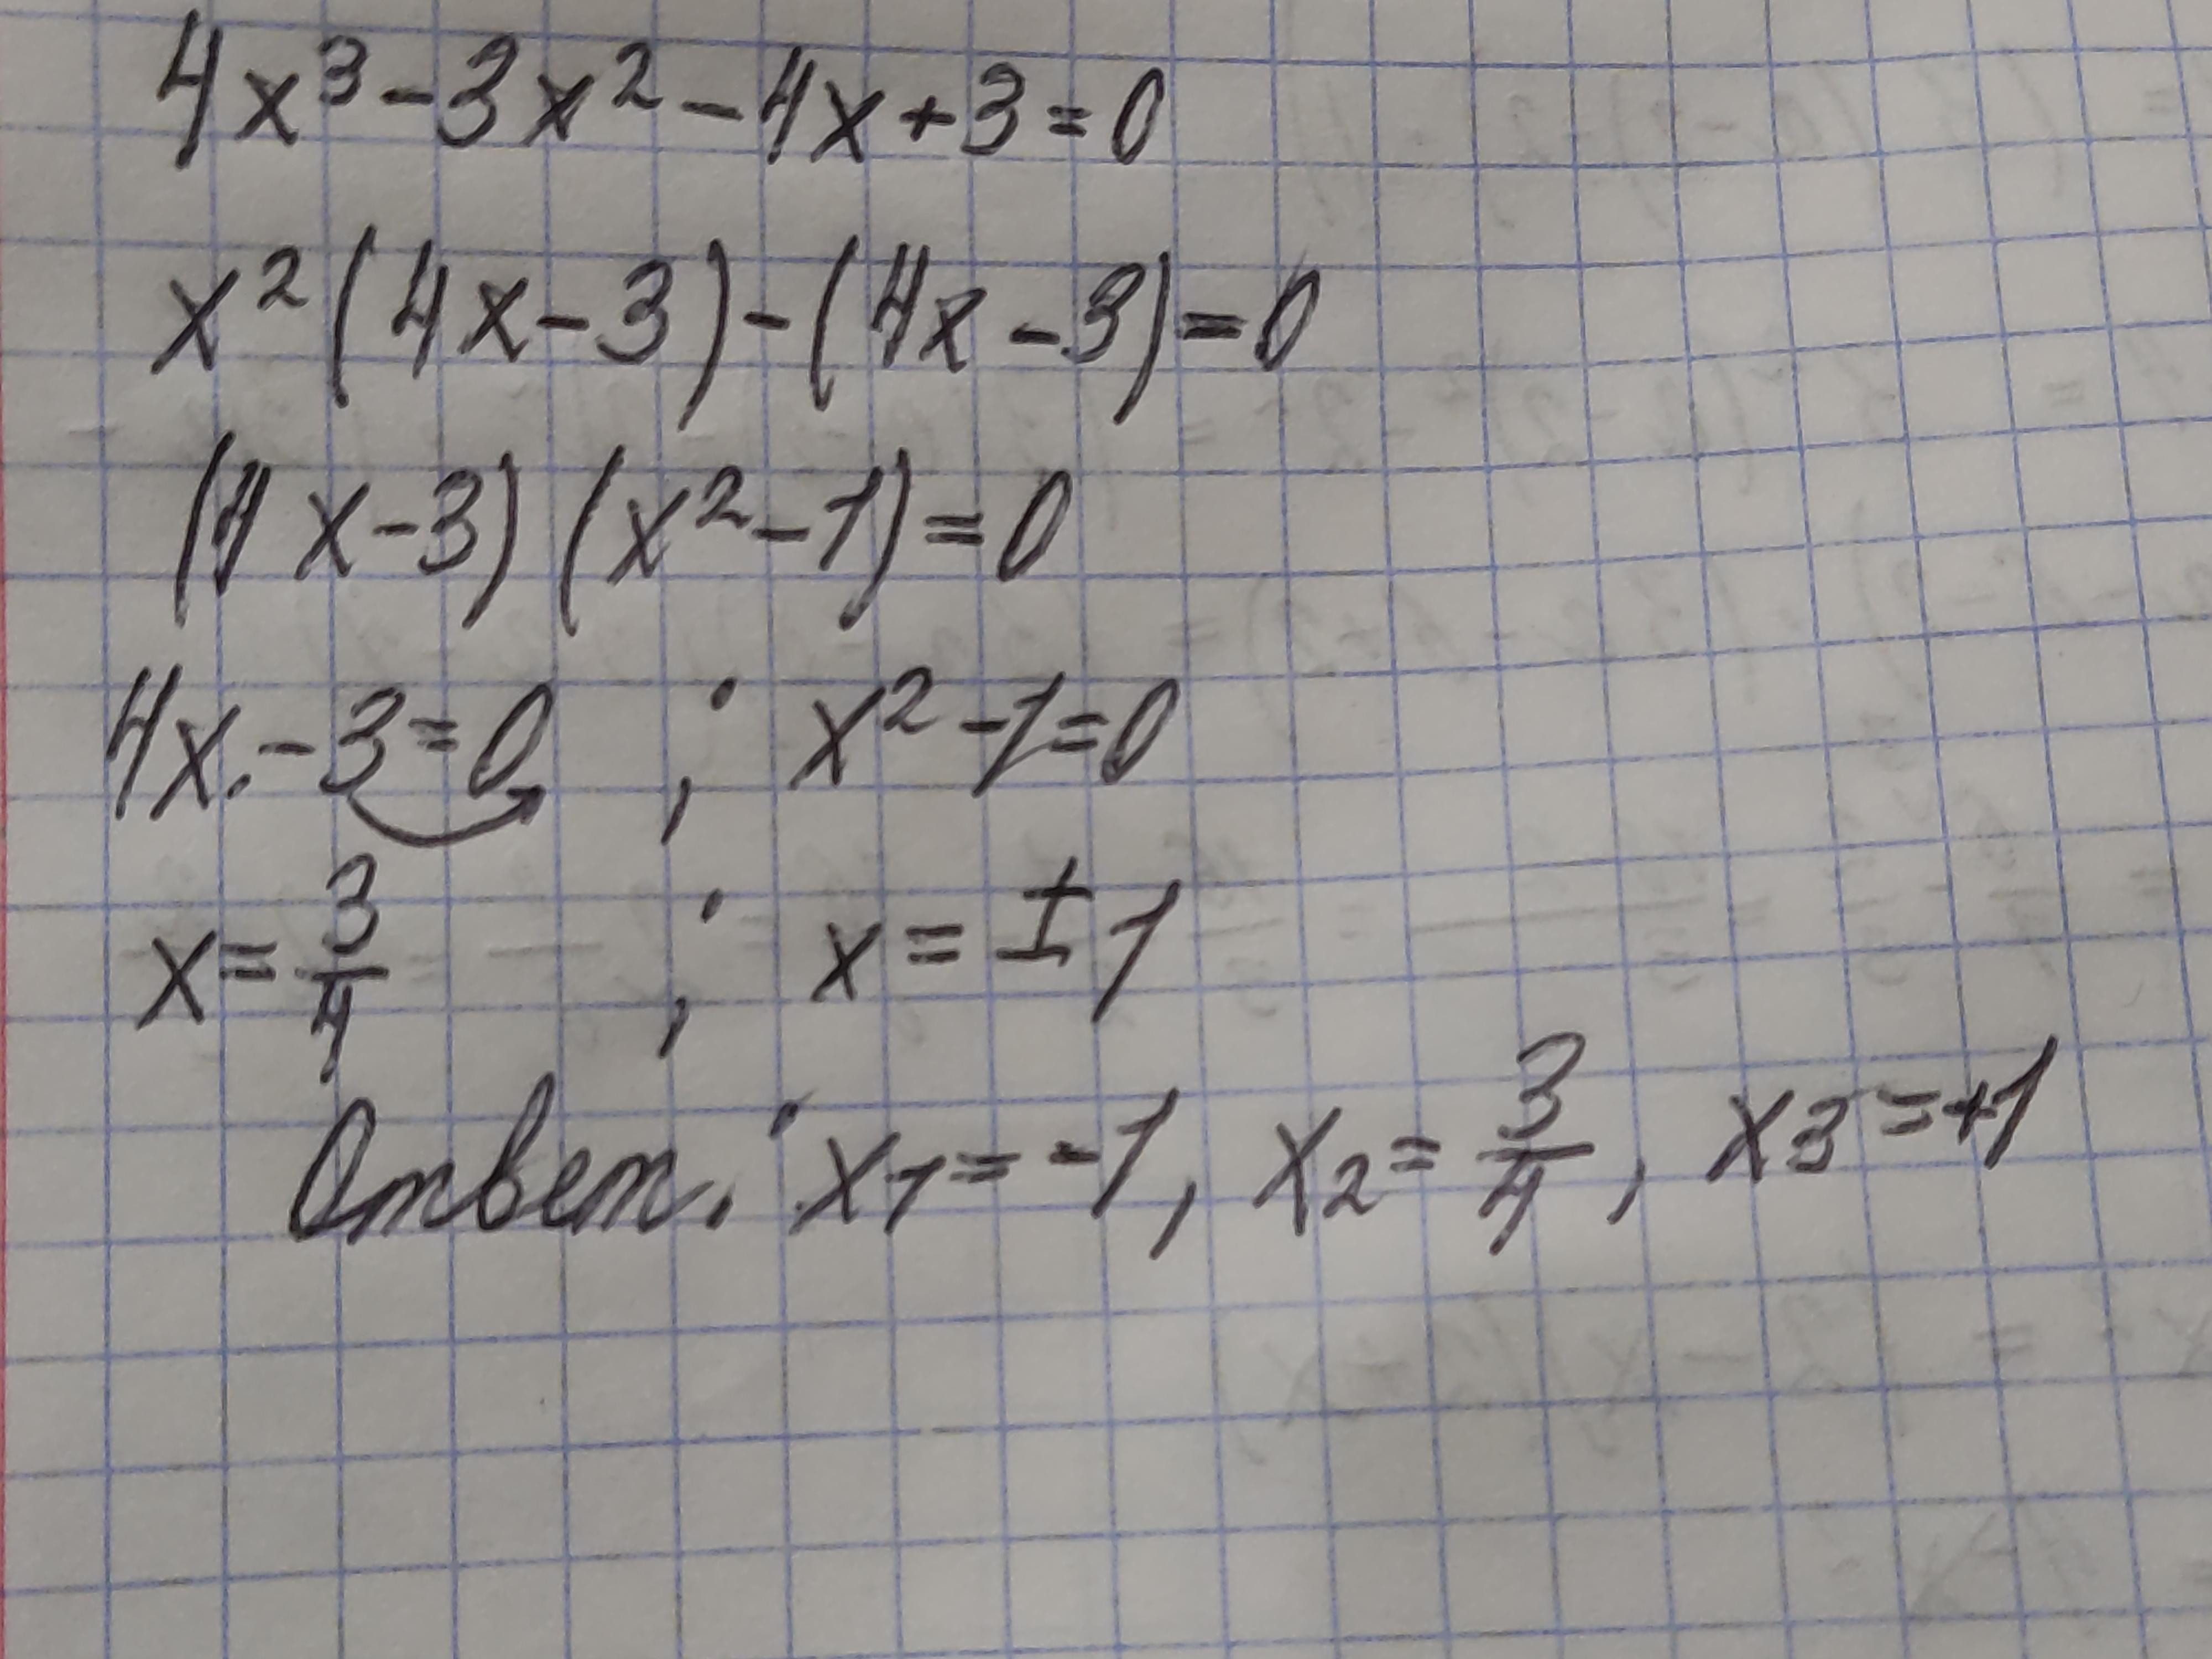 4x³-3x²-4x+3=0
x²(4x-3)-(4x-3)=0
(4x-3)(x²-1)=0
4x-3=0 ; x²-1=0
x=3/4 ; x=±1
Ответ: x₁=-1, x₂=3/4, x₃=+1